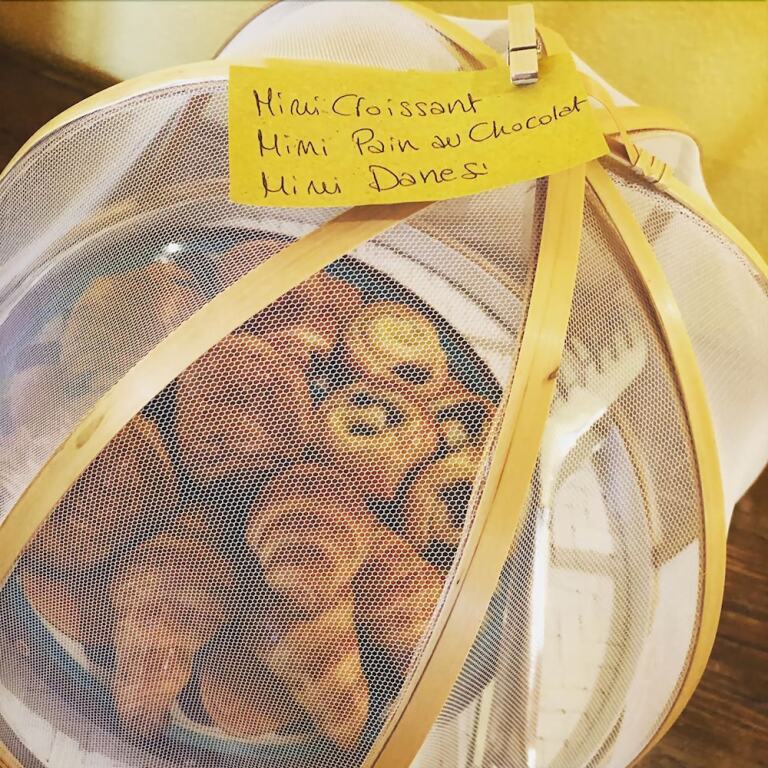 Mini Croissant
Mini Pain au Chocolat
Mini Danesi